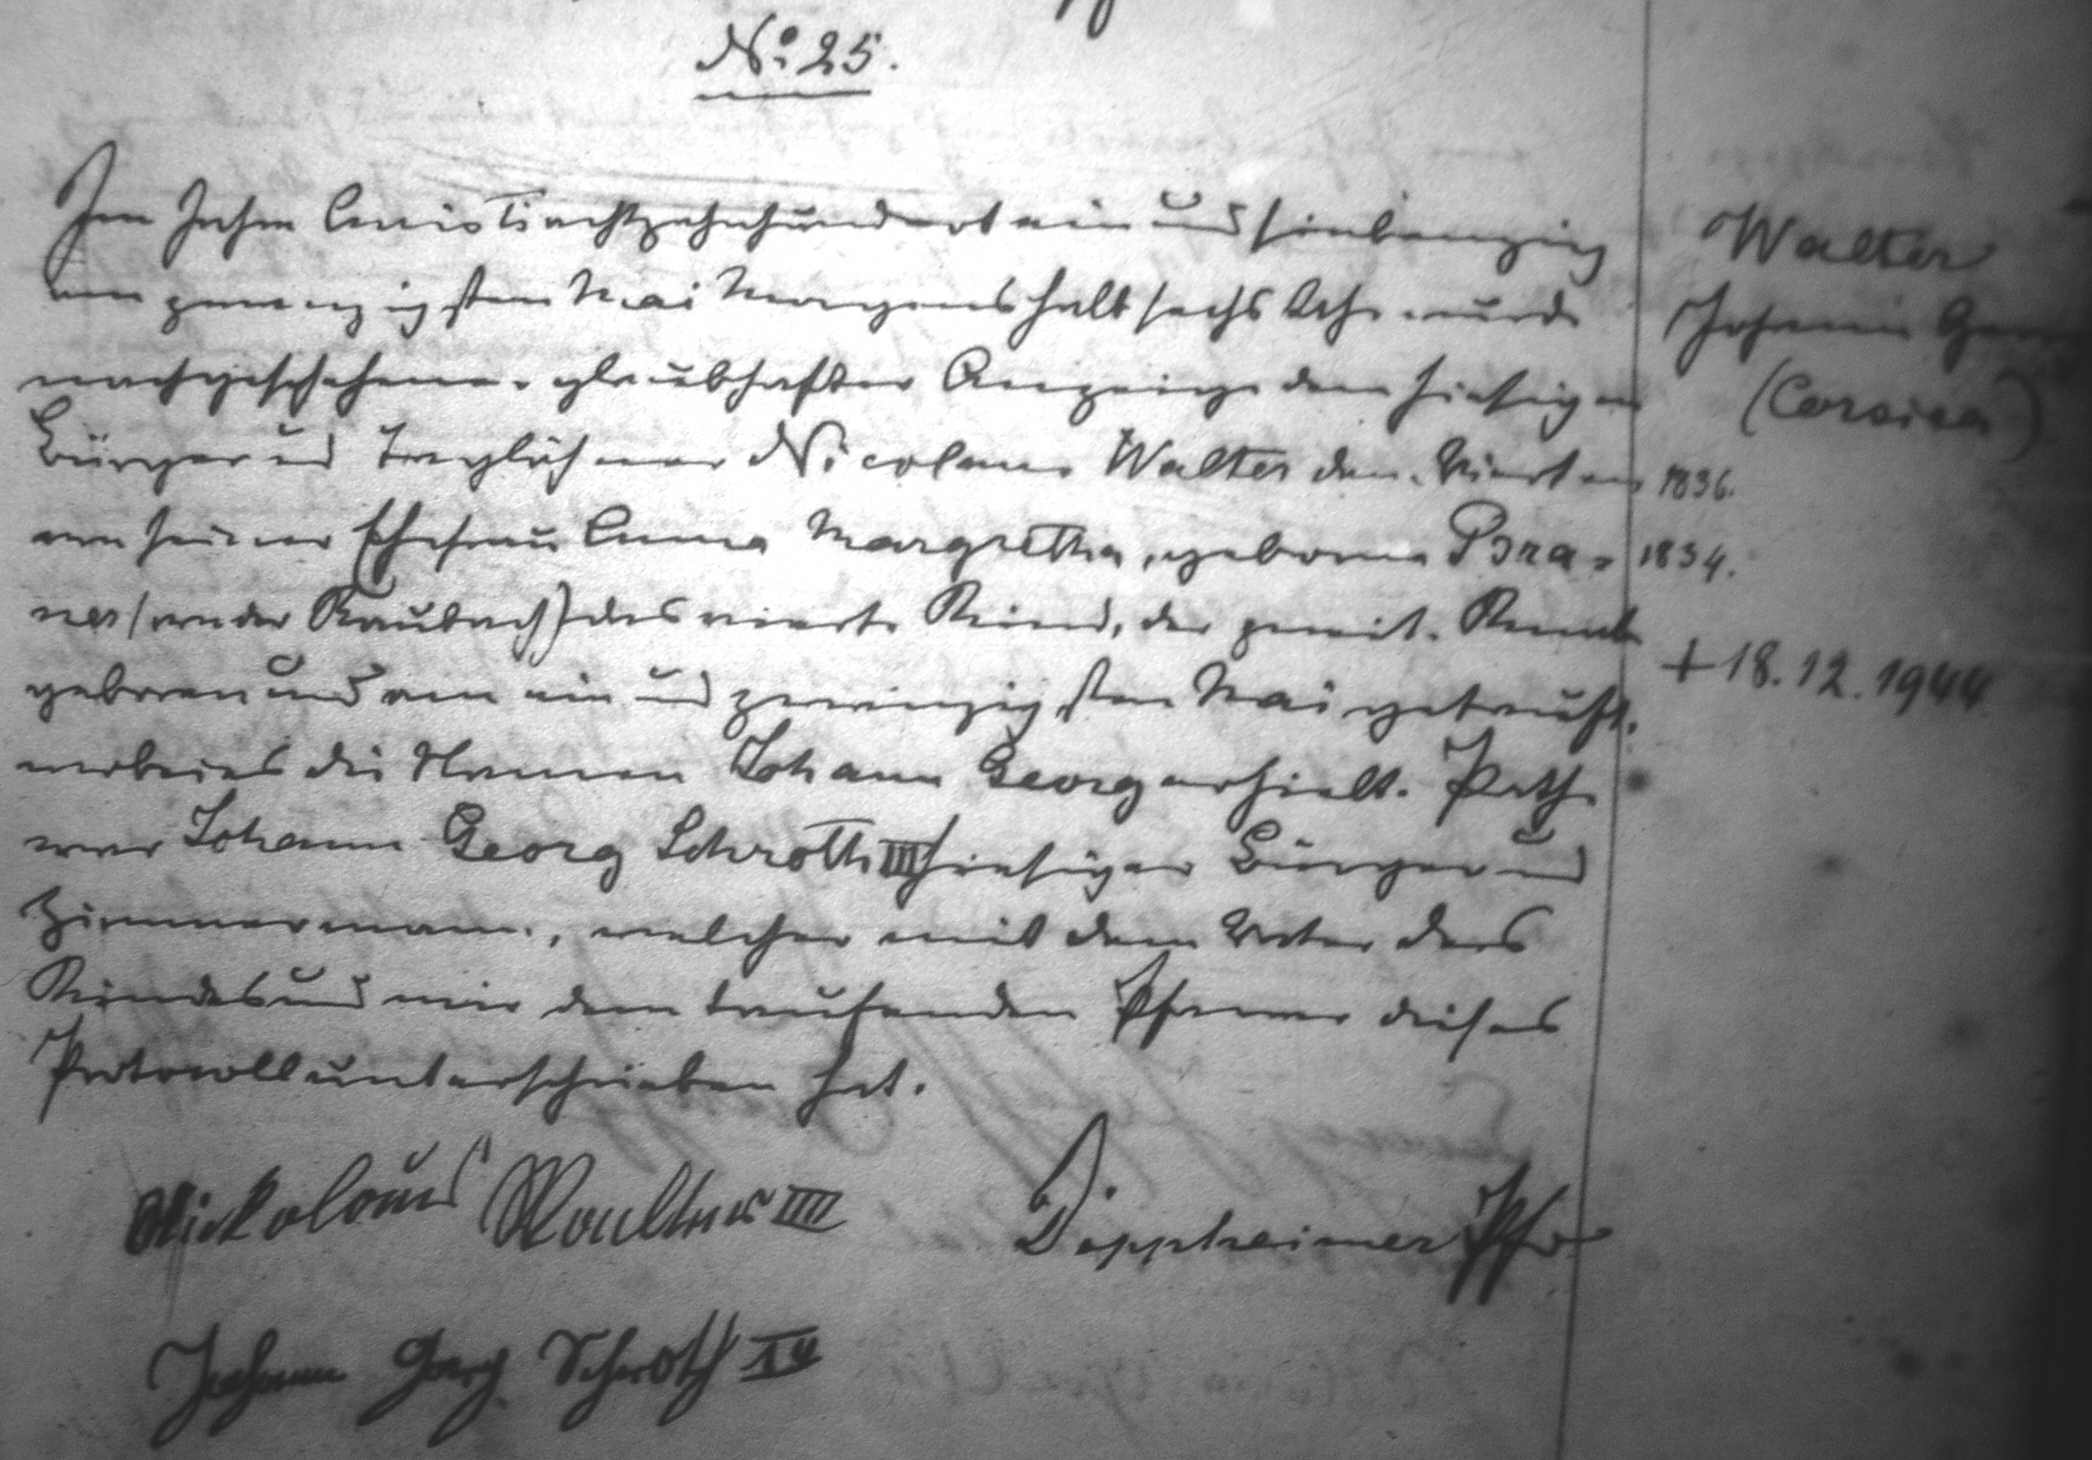 No. 25.
Im Jahre Christi achtzehnhundert ein und siebenzig
am zwanzigsten Mai Morgens halb sechs Uhr wurde
nach geschehener glaubhafter Anzeige dem hiesigen
Bürger und Taglöhner Nicolaus Walter dem Vierten
von seiner Ehefrau Anna Margretha, geborne Bra-
ner (von der Raubach) das vierte Kind, der zweite Knabe
geboren und am ein und zwanzigsten Mai getauft,
wobei es die Namen Johann Georg erhielt. Pathe
war Johann Georg Schroth III hiesiger Bürger und
Zimmermann, welcher mit dem Vater des
Kindes und mir dem taufenden Pfarrer dieses
Protocoll unterschrieben hat.
Nickolaus Waulter IIII
Doppheimer Pfr
Johann Georg Schroth IV
Walter
Johann
(Corsica)
1836.
1834.
+ 18.12.1944